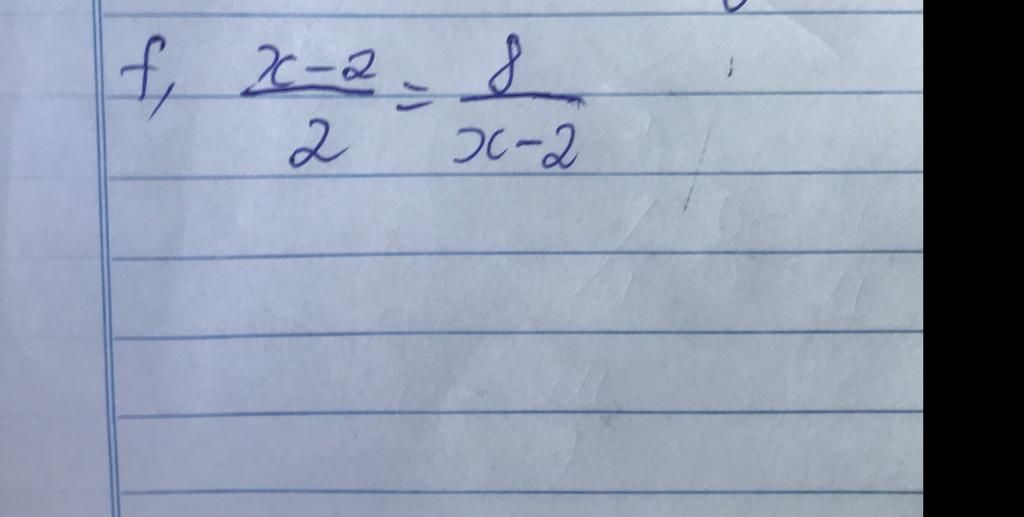 f, x-2/2 = 8/x-2